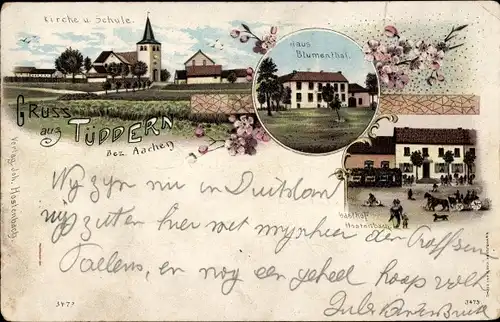 Kirche u. Schule.
Haus
Blumenthal.
Gruss
aus Tüddern
Bez. Aachen
Gasthof
Hostenbach
Verlag Joh. Hostenbach
Wy zyn nu in Duitsland
wij zitten hier met mynheer den
en nog een geheel hoop volk
Jules
3477
3477